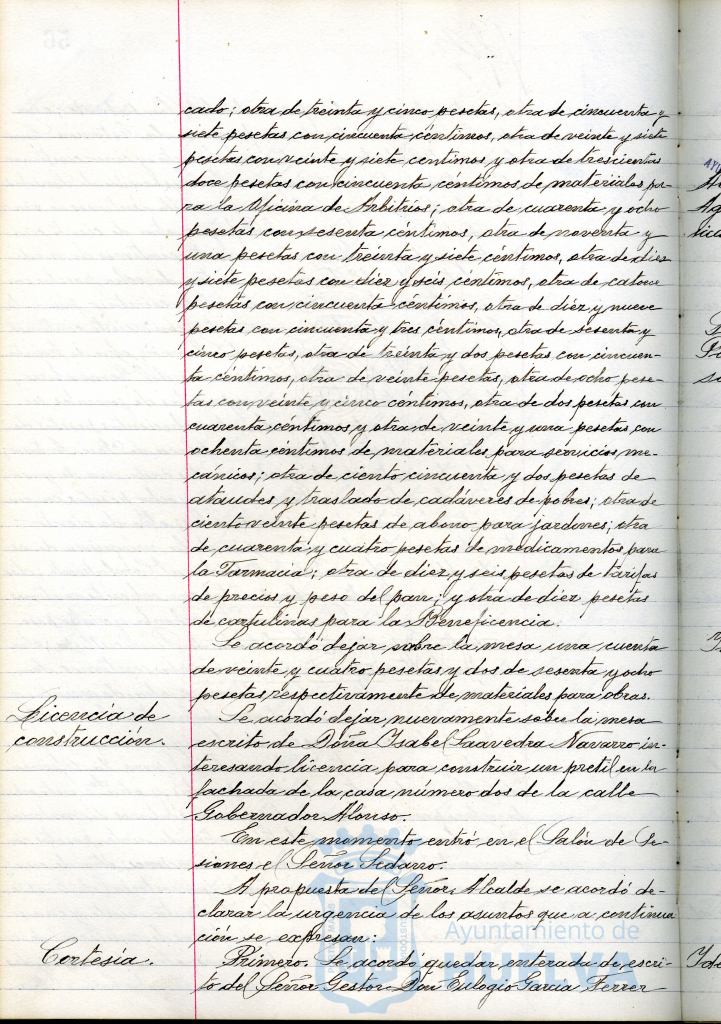 cado; otra de treinta y cinco pesetas, otra de cincuenta y
siete pesetas con cincuenta céntimos, otra de veinte y siete
pesetas con veinte y siete centimos y otra de trescientas
doce pesetas con cincuenta céntimos de materiales pa-
ra la Oficina de Arbitrios; otra de cuarenta y ocho
pesetas con sesenta céntimos, otra de noventa y
una pesetas con treinta y siete céntimos, otra de diez
y siete pesetas con diez y seis céntimos, otra de catorce
pesetas con cincuenta céntimos, otra de diez y nueve
pesetas con cincuenta y tres céntimos, otra de sesenta y
cinco pesetas, otra de treinta y dos pesetas con cincuen-
ta céntimos, otra de veinte pesetas, otra de ocho pese-
tas con veinte y cinco céntimos, otra de dos pesetas con
cuarenta céntimos y otra de veinte y una pesetas con
ochenta céntimos de materiales para servicios me-
cánicos; otra de ciento cincuenta y dos pesetas de
ataudes y traslado de cadáveres de pobres; otra de
ciento veinte pesetas de abono para jardines; otra
de cuarenta y cuatro pesetas de medicamentos para
la Farmacia; otra de diez y seis pesetas de tarifas
de precios y peso del pan; y otra de diez pesetas
de cartulinas para la Beneficencia.
Se acordó dejar sobre la mesa una cuenta
de veinte y cuatro pesetas y dos de sesenta y ocho
pesetas respectivamente de materiales para obras.
Licencia de
construcción.
Se acordó dejar nuevamente sobre la mesa
escrito de Doña Isabel Saavedra Navarro in-
teresando licencia para construir un pretil en la
fachada de la casa número dos de la calle
Gobernador Alonso.
En este momento entró en el Salón de Se-
siones el Señor Sedarro.
A propuesta del Señor Alcalde se acordó de-
clarar la urgencia de los asuntos que a continua
ción se expresan:
Cortesía.
Primero. Se acordó quedar enterada de escri-
to del Señor Gestor Don Eulogio García Ferrer
Ayuntamiento de
HUELVA